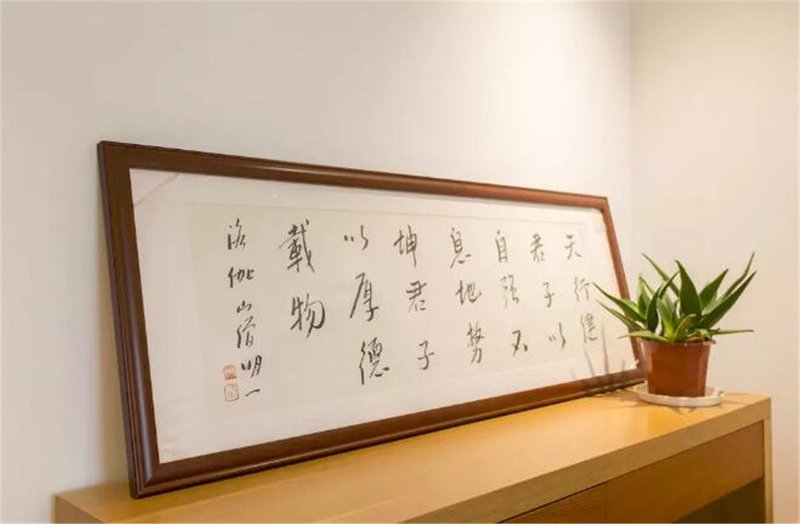 天行健
君子以
自强不
息地势
坤君子
以厚德
載物
洛伽山僧明一